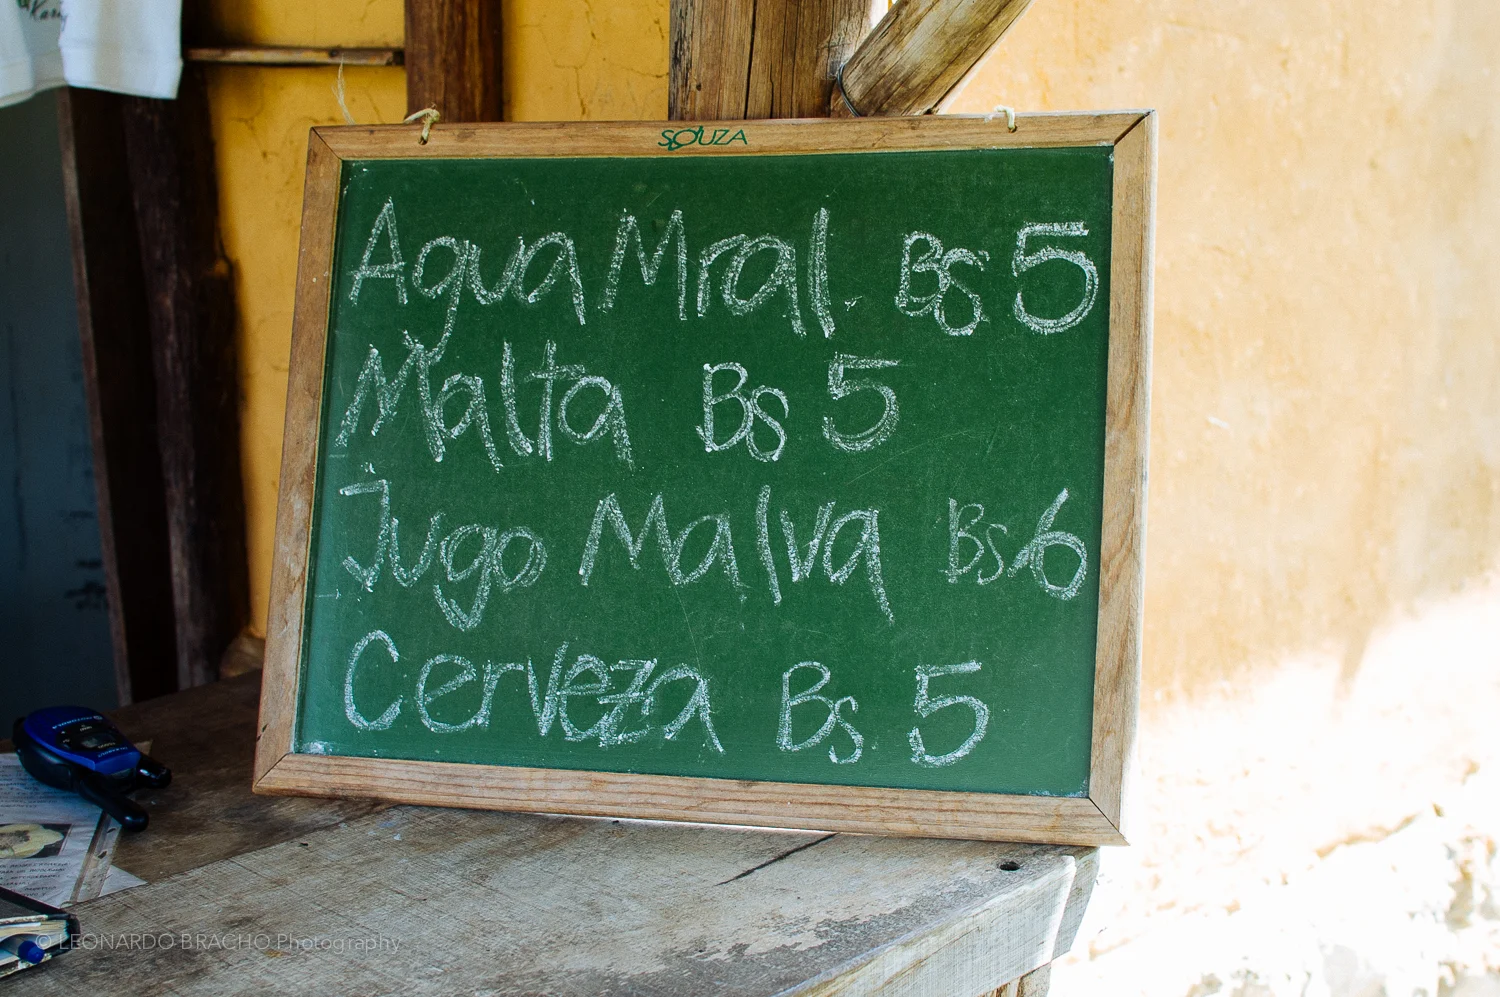 SOUZA
Agua Mral Bs 5
Malta Bs 5
Jugo Malva Bs 6
Cerveza Bs 5
© LEONARDO BRACHO Photography